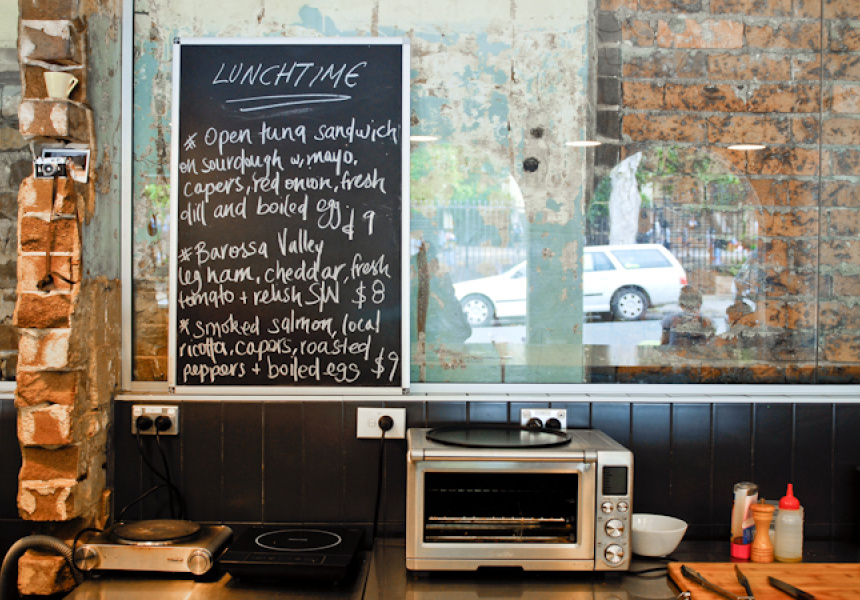 LUNCHTIME
* Open tuna sandwich
on sourdough w, mayo,
capers, red onion, fresh
dill and boiled egg. $9
* Barossa Valley
leg ham, cheddar, fresh
tomato + relish S/W $8
* smoked salmon, local
ricotta, capers, roasted
peppers + boiled egg $9